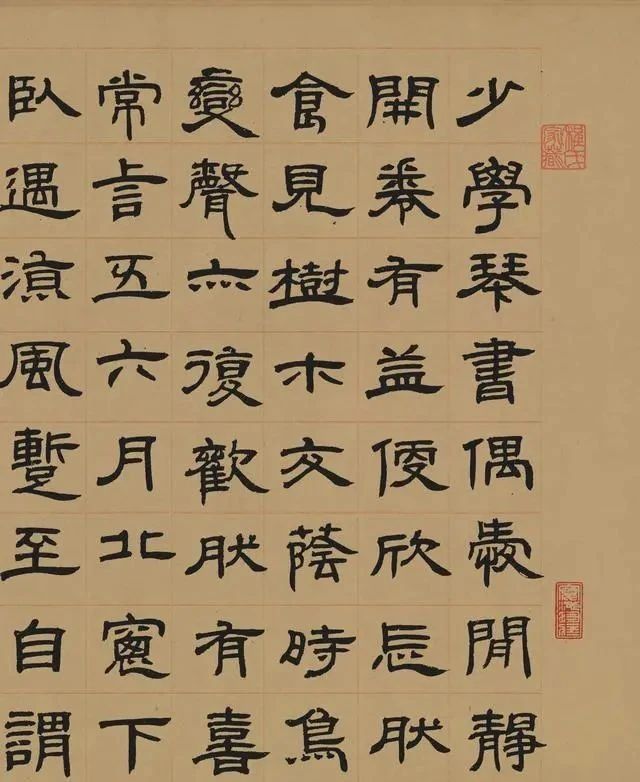 少學琴書偶愛閒靜
開卷有益便欣忘肰
食見樹木交蔭時鳥
變聲亦復歡肰有喜
常言五六月北窻下
臥遇涼風暫至自謂